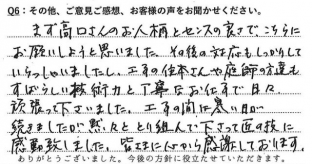 Q6：その他、ご意見ご感想、お客様の声をお聞かせください。
まず高口さんのお人柄とセンスの良さでこちらに
お願いしようと思いました。その後の対応もしっかりして
いらっしゃいましたし、工事の住本さんや庭師の方達も
すばらしい技術力と丁寧なお仕事で日々
頑張って下さいました。工事の間に寒い日が
続きましたが黙々ととり組んで下さって匠の技に
感動致しました。皆さまに心から感謝しております。
ありがとうございました。今後の方針に役立たせていただきます。